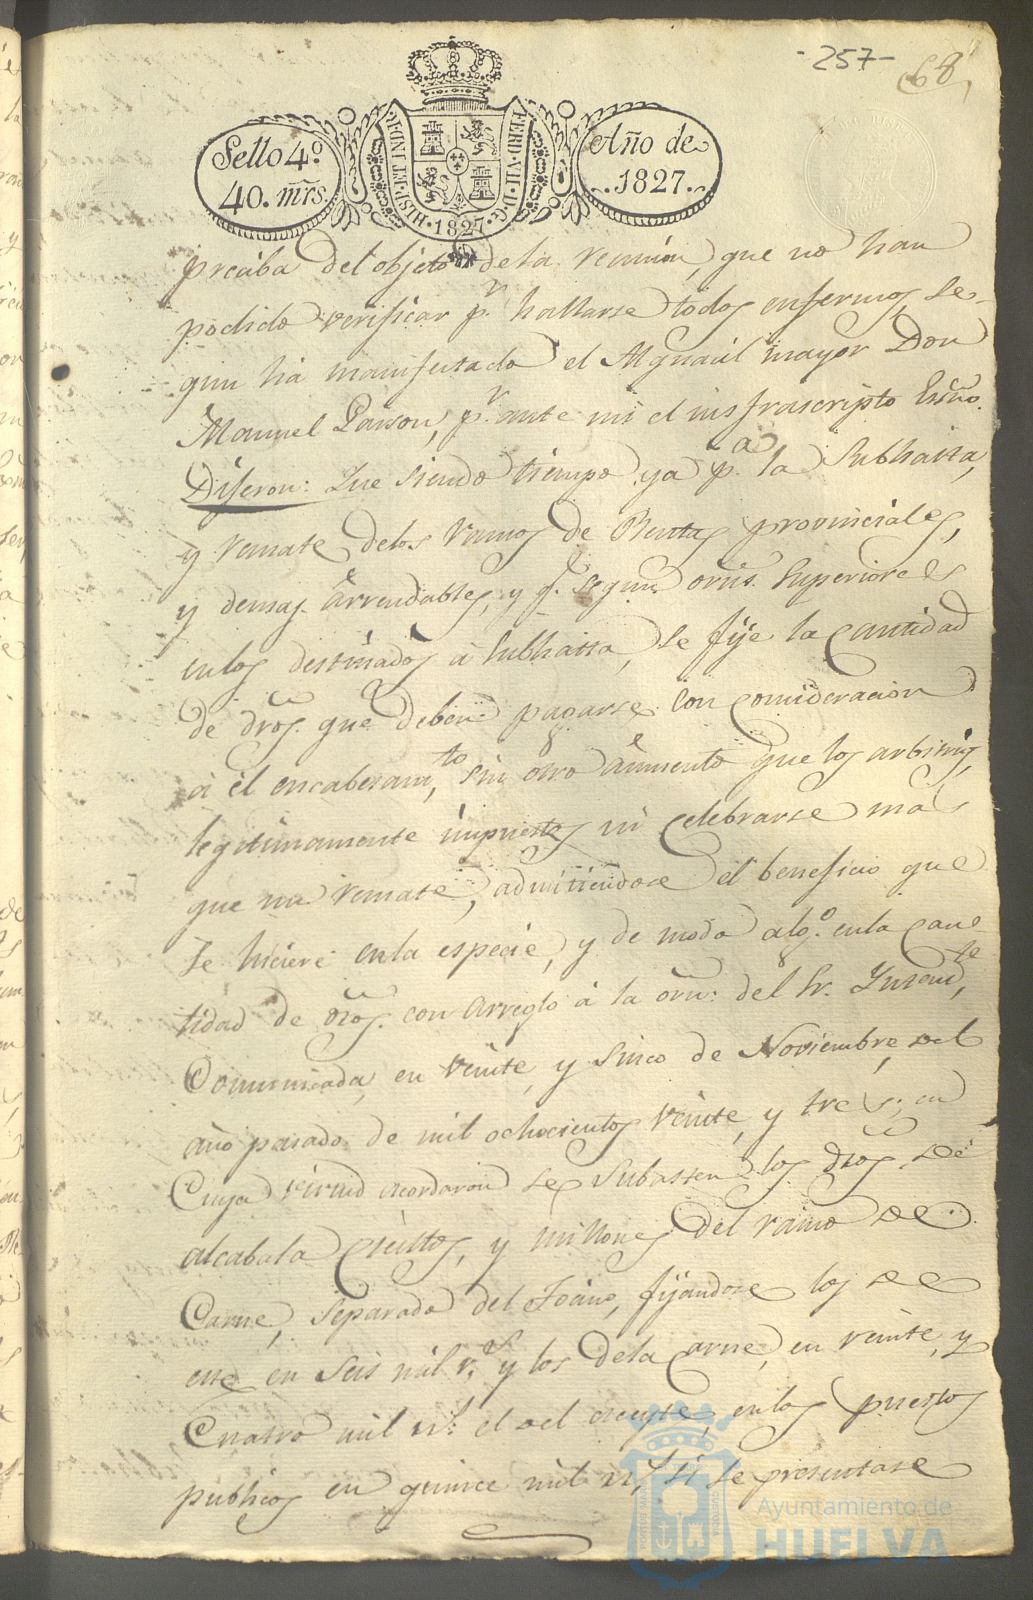 -257-
68
Sello 4.º
40. mrs.
HISP. ET IND. R.
FERD. VII. D. G.
·1827·
Año de
1827.
preciba del objeto de la reunion, que no han
podido verificar p.r hallarse todos enfermos se-
gun ha manifestado el Alguacil mayor Don
Manuel Garson, p.r ante mi el infrascripto Essno.
Dijeron: Que siendo tiempo ya p.a la Subhasta,
y remate delos ramos de Rentas provinciales,
y demas arrendables, y q.e segun orns. Superiores
enlos destinados á Subhasta, se fije la cantidad
de dros. que deben pagarse con consideracion
á el encabesam.to, sin otro aumento que los arbitrios,
legitimamente impuestos ni celebrarse mas
que un remate, admitiendose el beneficio que
se hiciere enla especie, y de modo alg.o enla can-
tidad de dros. con arreglo á la orn: del Sr. Yntend.te,
Comunicada en veinte, y sinco de Noviembre del
año pasado de mil ochocientos veinte, y tres; en
Cuya virtud acordaron se Subasten los dros de
alcabala cientos, y millones del ramo de
Carne, separado del Tosino, fijandose los de
este en seis mil r.s y los dela Carne, en veinte, y
Cuatro mil rs. el del aceyte, enlos puestos
publicos en quince mil rs, si se presentase
Ayuntamiento de
HUELVA